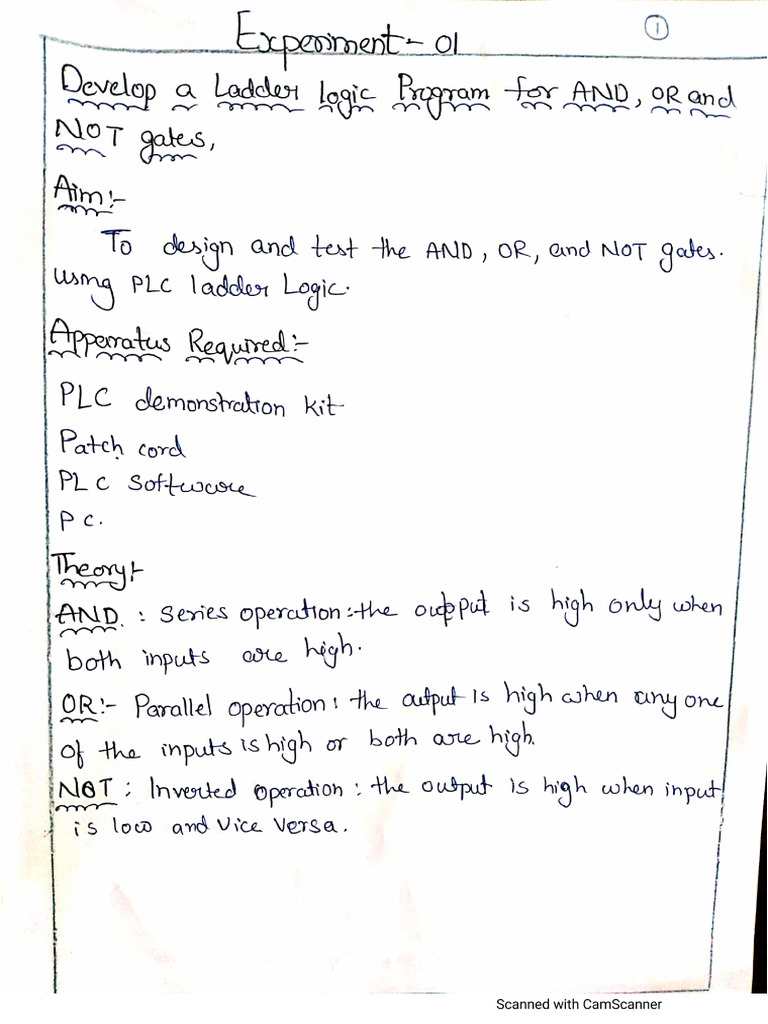 Experiment - 01
1
Develop a Ladder logic Program for AND, OR and
NOT gates,
Aim:-
To design and test the AND, OR, and NOT gates.
using PLC ladder Logic.
Apperratus Required:-
PLC demonstration kit
Patch cord
PLC Software
PC.
Theory:-
AND. : Series operation: the output is high only when
both inputs are high.
OR:- Parallel operation: the output is high when any one
of the inputs is high or both are high.
NOT : Inverted operation : the output is high when input
is low and vice versa.
Scanned with CamScanner